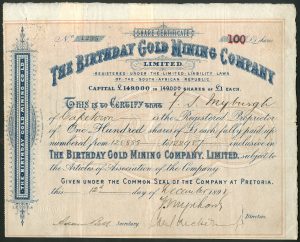 SHARE CERTIFICATE
No.
100 Shares
THE BIRTHDAY GOLD MINING COMPANY
LIMITED.
REGISTERED UNDER THE LIMITED LIABILITY LAWS
OF THE SOUTH AFRICAN REPUBLIC
CAPITAL £148000 in 148000 SHARES of £1 EACH.
THIS IS TO CERTIFY THAT
of Capetown is the Registered Proprietor
of One Hundred shares of £1 each fully paid up
numbered from to inclusive in
THE BIRTHDAY GOLD MINING COMPANY, LIMITED, subject to
the Articles of Association of the Company
GIVEN UNDER THE COMMON SEAL OF THE COMPANY AT PRETORIA,
this day of
Secretary
Directors